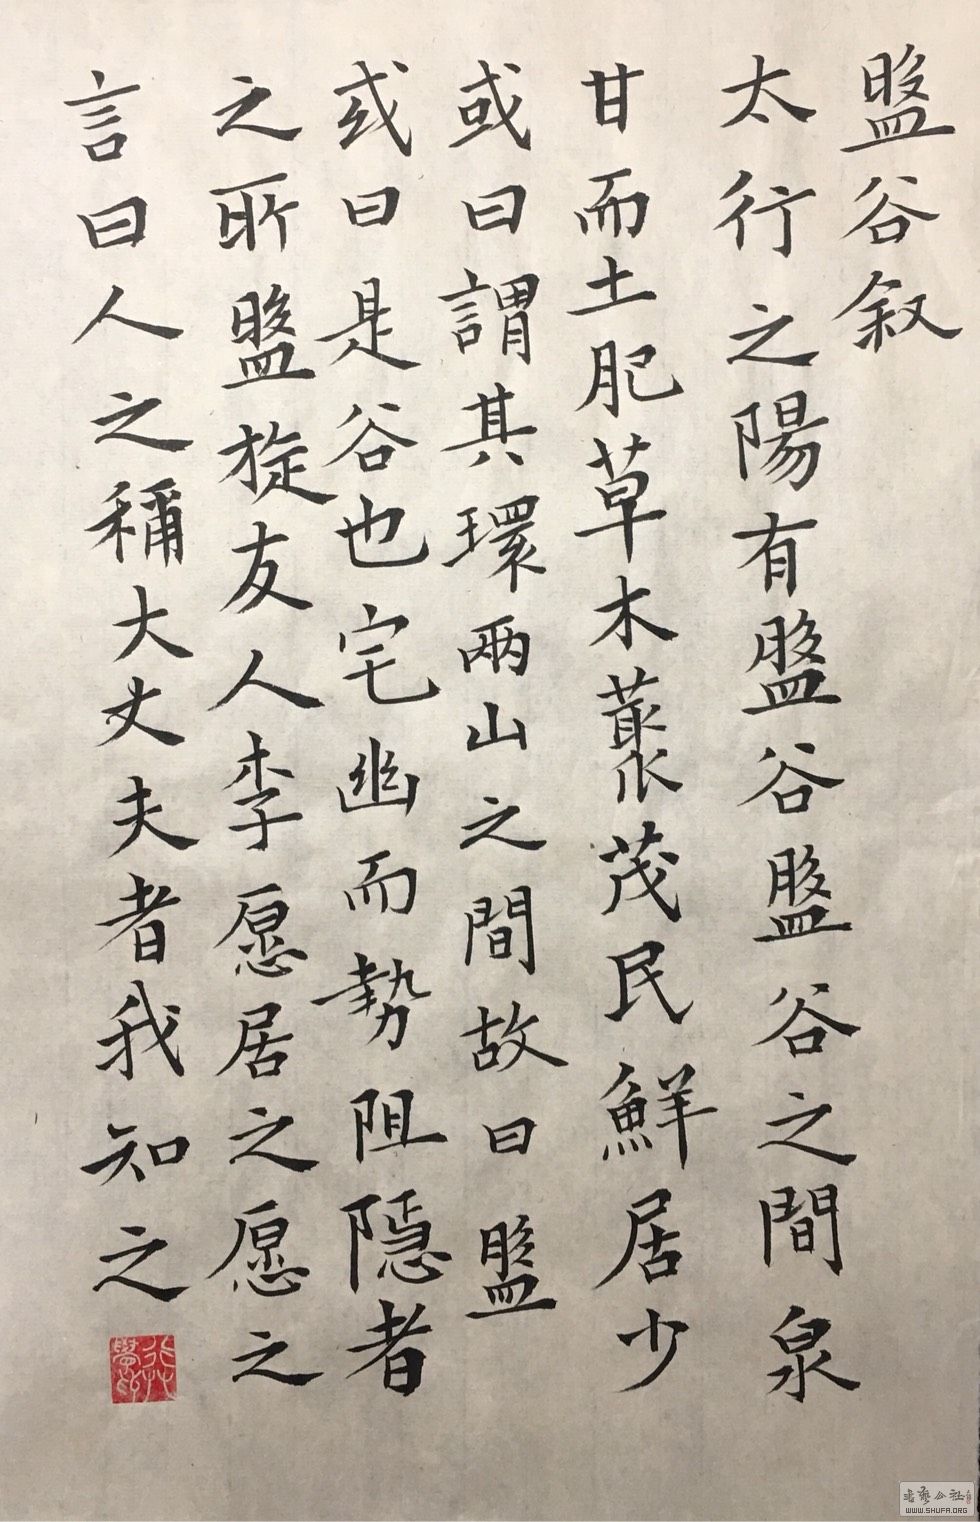 盤谷叙
太行之陽有盤谷盤谷之間泉
甘而土肥草木藂茂民鮮居少
或曰謂其環兩山之間故曰盤
或曰是谷也宅幽而勢阻隱者
之所盤旋友人李愿居之愿之
言曰人之稱大丈夫者我知之
书艺公社
WWW.SHUFA.ORG